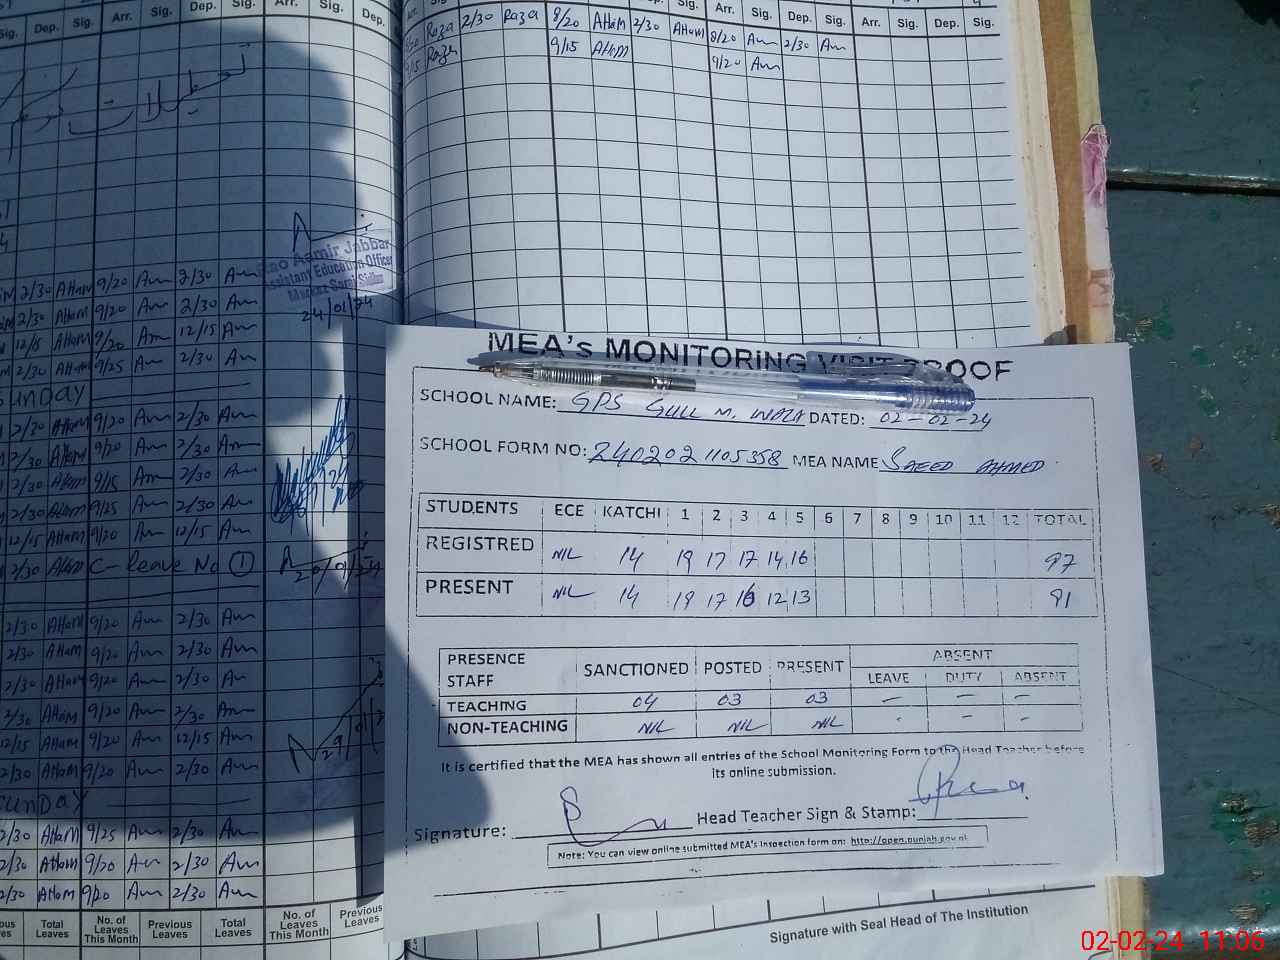 Sig. Dep. Sig. Arr. Sig. Dep. Sig. Arr. Dep.
Arr. Sig. Dep. Sig. Arr. Sig. Dep. Sig. Arr. Sig. Dep. Sig. Arr. Sig. Dep. Sig.
Raza 2/30 Raza 8/20 AHam 2/30 AHam 8/20 Am 2/30 Am
Raza 9/15 AHam 9/20 Am
تعطیلات موسم
Rao Aamir Jabbar
Assistant Education Officer
24/01/24
2/30 AHam 9/20 Am 2/30 Am
2/30 AHam 9/20 Am 2/30 Am
12/15 AHam 9/20 Am 12/15 Am
2/30 AHam 9/25 Am 2/30 Am
SUNDAY
2/30 AHam 9/20 Am 2/30 Am
2/30 AHam 9/20 Am 2/30 Am
2/30 AHam 9/15 Am 2/30 Am
2/30 AHam 9/25 Am 2/30 Am
12/15 AHam 9/20 Am 12/15 Am
2/30 AHam C-leave No 1
2/30 AHam 9/20 Am 2/30 Am
2/30 AHam 9/20 Am 2/30 Am
2/30 AHam 9/20 Am 2/30 Am
2/30 AHam 9/20 Am 2/30 Am
12/15 AHam 9/20 Am 12/15 Am
2/30 AHam 9/20 Am 2/30 Am
SUNDAY
2/30 AHam 9/25 Am 2/30 Am
2/30 AHam 9/20 Am 2/30 Am
2/30 AHam 9/20 Am 2/30 Am
Total Leaves No. of Leaves This Month Previous Leaves Total Leaves No. of Leaves This Month Previous Leaves
MEA's MONITORING VISIT PROOF
SCHOOL NAME: GPS GULL M. WALA DATED: 02-02-24
SCHOOL FORM NO: 2402021105358 MEA NAME SAEED AHMED
STUDENTS ECE KATCHI 1 2 3 4 5 6 7 8 9 10 11 12 TOTAL
REGISTRED NIL 14 19 17 17 14 16 97
PRESENT NIL 14 19 17 16 12 13 91
PRESENCE STAFF SANCTIONED POSTED PRESENT ABSENT
LEAVE DUTY ABSENT
TEACHING 04 03 03 - - -
NON-TEACHING NIL NIL NIL - - -
It is certified that the MEA has shown all entries of the School Monitoring Form to the Head Teacher before
its online submission.
Signature: Head Teacher Sign & Stamp:
Note: You can view online submitted MEA's Inspection form on: http://open.punjab.gov.pk
Signature with Seal Head of The Institution
02-02-24 11:06